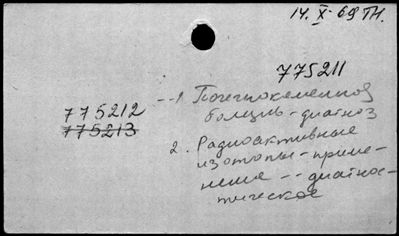 14. X. 69 ТН.
775211
775212
775213
1. Почечнокаменная
болезнь - диагноз
2. Радиоактивные
изотопы - приме-
нение -- диагнос-
тическое